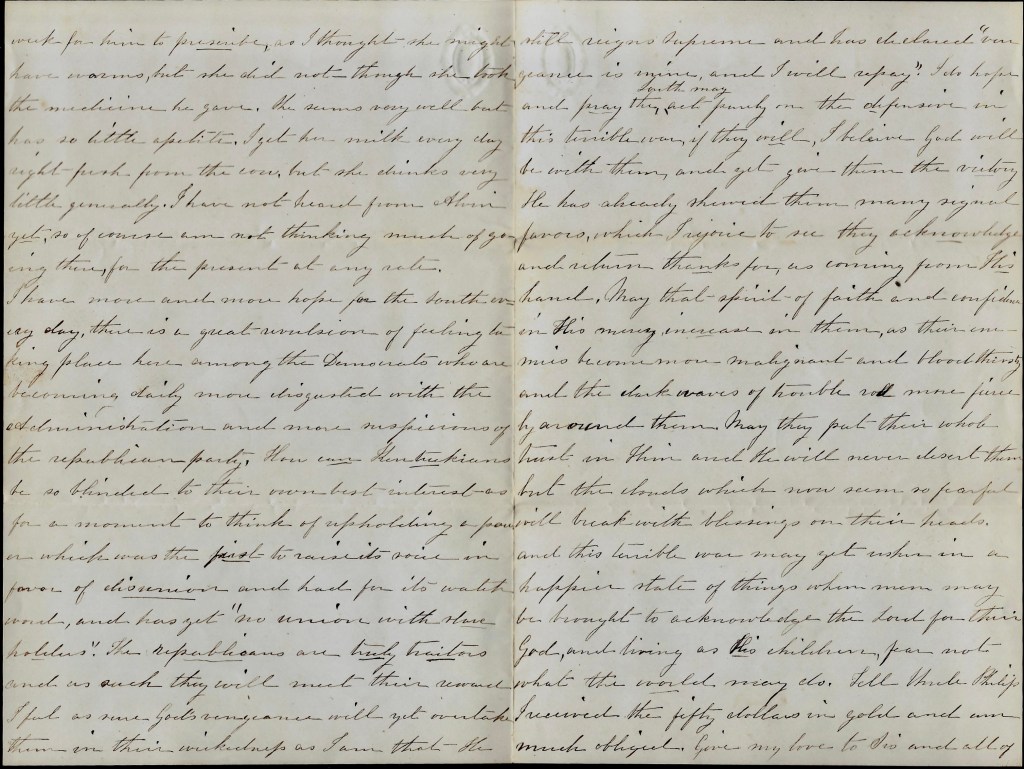 week for him to prescribe, as I thought she might
have worms, but she did not though she took
the medicine he gave. She seems very well but
has so little apetite. I get her milk every day
right fresh from the cow, but she drinks very
little generally. I have not heard from Alvin
yet, so of course am not thinking much of go
ing there, for the present at any rate.
I have more and more hope for the South ev
ery day, there is a great revulsion of feeling ta
king place here among the Democrats who are
becoming daily more disgusted with the
Administration and more suspicious of
the republican party. How can Kentuckians
be so blinded to their own best interest as
for a moment to think of upholding a pow
er which was the first to raise its voice in
favor of dissunion and had for its watch
word, and has yet "no union with slave
holders". The republicans are truly traitors
and as such they will meet their reward
I feel as sure God's vengeance will yet overtake
them in their wickedness as I am that He
still reigns supreme and has declared "ven
geance is mine, and I will repay". I do hope
and pray the South may act purely on the defensive in
this terrible war, if they will, I beleive God will
be with them, and yet give them the victory
He has already shewed them many signal
favors, which I rejoice to see they acknowledge
and return thanks for, as coming from His
hand. May that spirit of faith and confidence
in His mercy increase in them, as their ene-
mies become more malignant and blood thirsty
and the dark waves of trouble roll more fierce
ly around them May they put their whole
trust in Him and He will never desert them
but the clouds which now seem so fearful
will break with blessings on their heads.
and this terrible war may yet usher in a
happier state of things when men may
be brought to acknowledge the Lord for their
God, and living as His children, fear not
what the world may do. Tell Uncle Philip
I received the fifty dollars in gold and am
much obliged. Give my love to Sis and all of